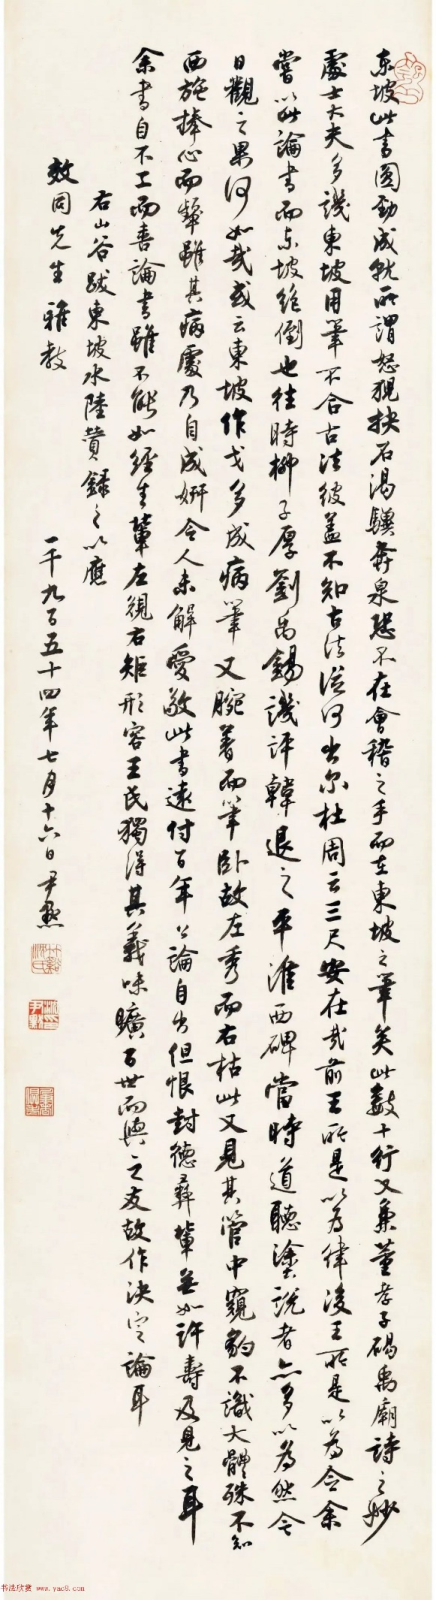 東坡此書圓勁成就所謂怒猊抉石渴驥奔泉恐不在會稽之手而在東坡之筆矣此數十行又兼董孝子碣禹廟詩之妙
處士大夫多譏東坡用筆不合古法彼蓋不知古法從何出尔杜周云三尺安在哉前王所是以為律後王所是以為令余
嘗以此論書而東坡絕倒也往時柳子厚劉禹錫譏評韓退之平淮西碑當時道聽塗説者亦多以為然今
日觀之果何如哉或云東坡作戈多成病筆又腕著而筆臥故左秀而右枯此又見其管中窺豹不識大體殊不知
西施捧心而顰雖其病處乃自成妍今人未解愛敬此書遠付百年公論自出但恨封德彝輩無如許壽及見之耳
余書自不工而喜論書雖不能如經生輩左規右矩形容王氏獨得其義味曠百世而與之友故作決定論耳
右山谷跋東坡水陸贊録之以應
效同先生雅教
一千九百五十四年七月十六日尹默
书法欣赏 www.yac8.com